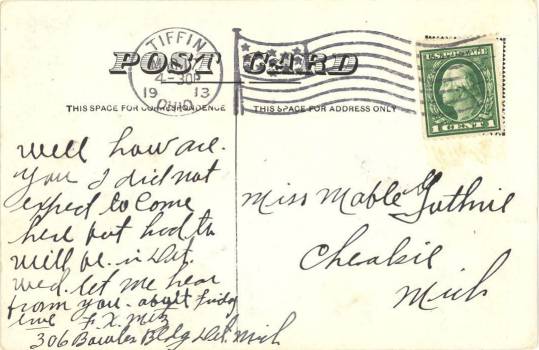 POST CARD
TIFFIN
4-30P
19 13
OHIO
U.S. POSTAGE
1 CENT 1
THIS SPACE FOR CORRESPONDENCE
THIS SPACE FOR ADDRESS ONLY
Well how are
you I did not
expect to come
here but had to
will be in Det.
wed. let me hear
from you. about Friday
F. X. Metz
306 Bowles Bldg Det. Mich
Miss Mable Guthrie
Mich